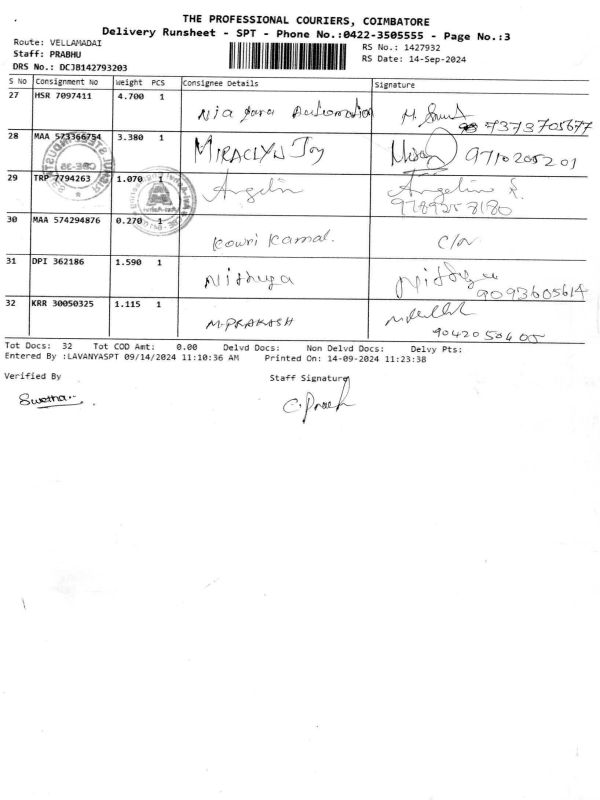 THE PROFESSIONAL COURIERS, COIMBATORE
Delivery Runsheet - SPT - Phone No.:0422-3505555 - Page No.:3
Route: VELLAMADAI
Staff: PRABHU
DRS No.: DCJB142793203
RS No.: 1427932
RS Date: 14-Sep-2024
S No Consignment No Weight PCS Consignee Details Signature
27 HSR 7097411 4.700 1 Automation 7373705677
28 MAA 573366754 3.380 1 MIRACLYN Joy 9710205201
29 TRP 7794263 1.070 1 Angelin Angelin
9789258180
30 MAA 574294876 0.270 1 Kowri Kamal.
31 DPI 362186 1.590 1 Nithya Nithya
9093605614
32 KRR 30050325 1.115 1 M.PRAKASH
9042050405
Tot Docs: 32 Tot COD Amt: 0.00 Delvd Docs: Non Delvd Docs: Delvy Pts:
Entered By :LAVANYASPT 09/14/2024 11:10:36 AM Printed On: 14-09-2024 11:23:38
Verified By Staff Signature
Swetha